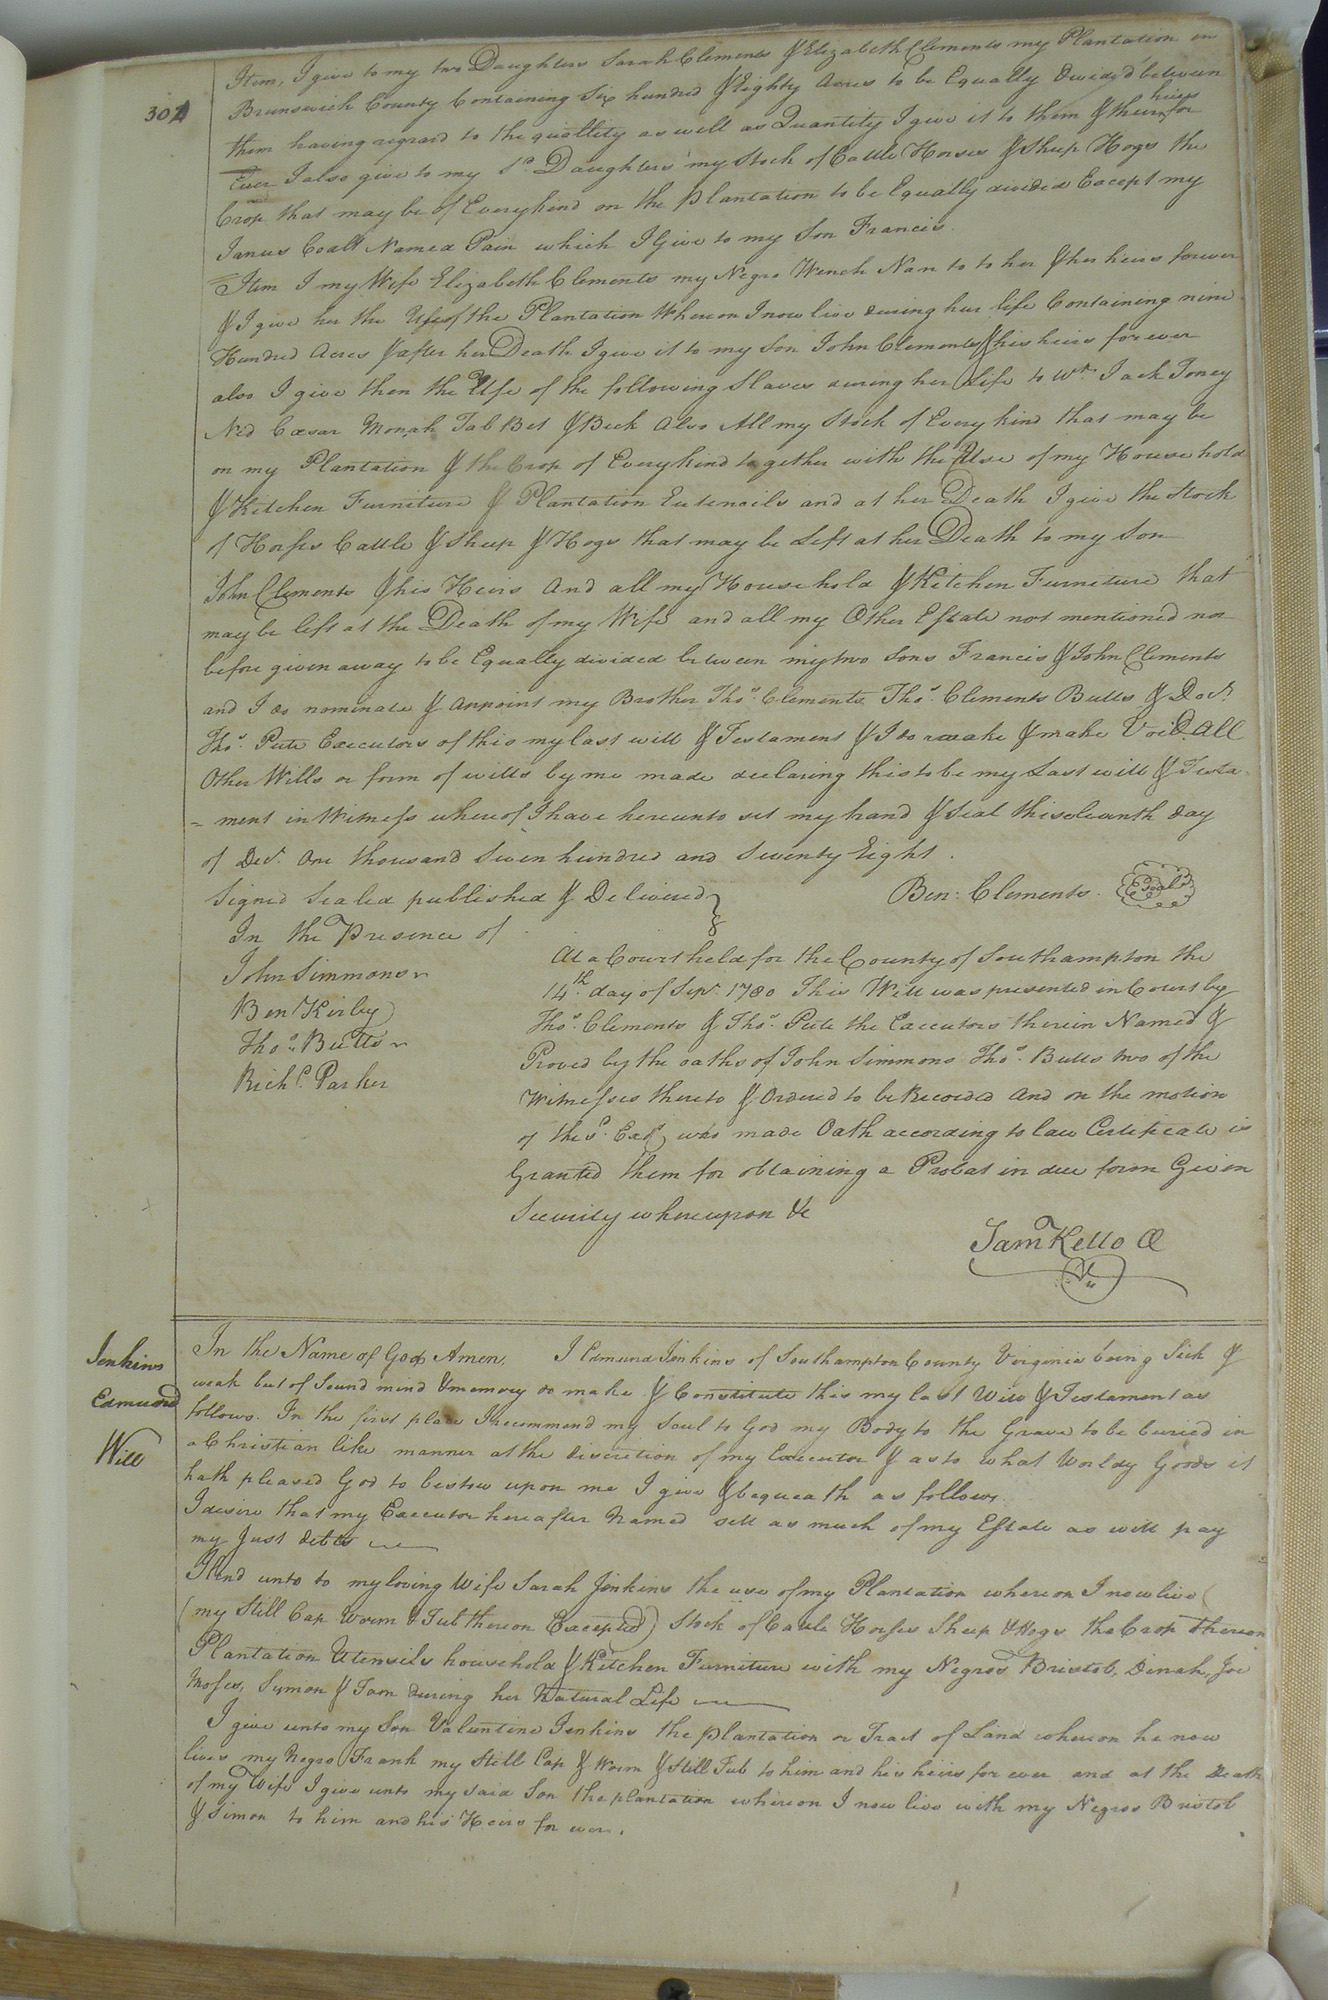 301
Item, I give to my two Daughters Sarah Clements & Elizabeth Clements my Plantation in
Brunswick County Containing Six hundred & Eighty Acres to be Equally divided between
them having regard to the quallity as well as Quantity I give it to them & their heirs for
Ever I also give to my sd. Daughters my Stock of Cattle Horses & Sheep Hogs the
Crop that may be of Every kind on the Plantation to be Equally divided Except my
Janus Coalt Named Pain which I Give to my Son Francis.
Item I my Wife Elizabeth Clements my Negro Wench Nan to to her & her heirs forever
& I give her the Use of the Plantation Whereon I now live during her life Containing nine
Hundred Acres & after her Death I give it to my Son John Clements & his heirs forever
also I give then the Use of the following Slaves during her Life to Wt. Jack Toney
Ned Cæsar Monah Tab Bet & Beck Also All my Stock of Every kind that may be
on my Plantation & the Crop of Every kind together with the Use of my Household
& Kitchen Furniture & Plantation Eutencils and at her Death I give the Stock
of Horses Cattle & Sheep & Hogs that may be Left at her Death to my Son
John Clements & his Heirs And all my Household & Kitchen Furniture that
may be left at the Death of my Wife and all my Other Estate not mentioned nor
before given away to be Equally divided between my two Sons Francis & John Clements
and I do nominate & Appoint my Brother Thos. Clements, Thos. Clements Butts & Doct.
Thos. Pete Executors of this my last will & Testament & I do revoake & make Void All
Other Wills or form of wills by me made declaring this to be my Last will & Testa
= ment in Witness whereof I have hereunto set my hand & Seal this eleventh day
of Decr. One thousand Seven hundred and Seventy Eight.
Signed Sealed published & Delivered } Ben: Clements. Seal
In the Presence of
John Simmons
Benj Kirby
Thos. Butts
Richd. Parker
At a Court held for the County of Southampton the
14th. day of Sepr. 1780 This Will was presented in Court by
Thos. Clements & Thos. Pete the Executors therein Named &
Proved by the oaths of John Simmons Thos. Butts two of the
Witnesses thereto & Ordered to be Recorded And on the motion
of the sd. Exrs. who made Oath according to law Certificate is
Granted them for obtaining a Probat in due form Given
Security whereupon &c
Sam Kello CC
Jenkins
Edmund
Will
In the Name of God Amen. I Edmund Jenkins of Southampton County Virginia being Sick &
weak but of Sound mind & memory do make & Constitute this my last Will & Testament as
follows. In the first place I recommend my Soul to God my Body to the Grave to be buried in
a Christian like manner at the discretion of my Executor & as to what Worldy Goods it
hath pleased God to bestow upon me I give & bequeath as follows.
I desire that my Executor hereafter Named sell as much of my Estate as will pay
my Just debts
I lend unto to my loving Wife Sarah Jenkins the use of my Plantation whereon I now live
(my Still Cap Worm & Tub thereon Excepted) Stock of Cattle Horses Sheep & Hogs the Crop thereon
Plantation Utensils household & Kitchen Furniture with my Negros Bristol, Dinah, Joe
Moses, Symon & Tom during her Natural Life
I give unto my Son Valentine Jenkins the plantation or Tract of Land whereon he now
lives my Negro Frank my Still Cap & Worm & Still Tub to him and his heirs for ever and at the Death
of my Wife I give unto my said Son the plantation whereon I now live with my Negros Bristol
& Simon to him and his Heirs for ever.